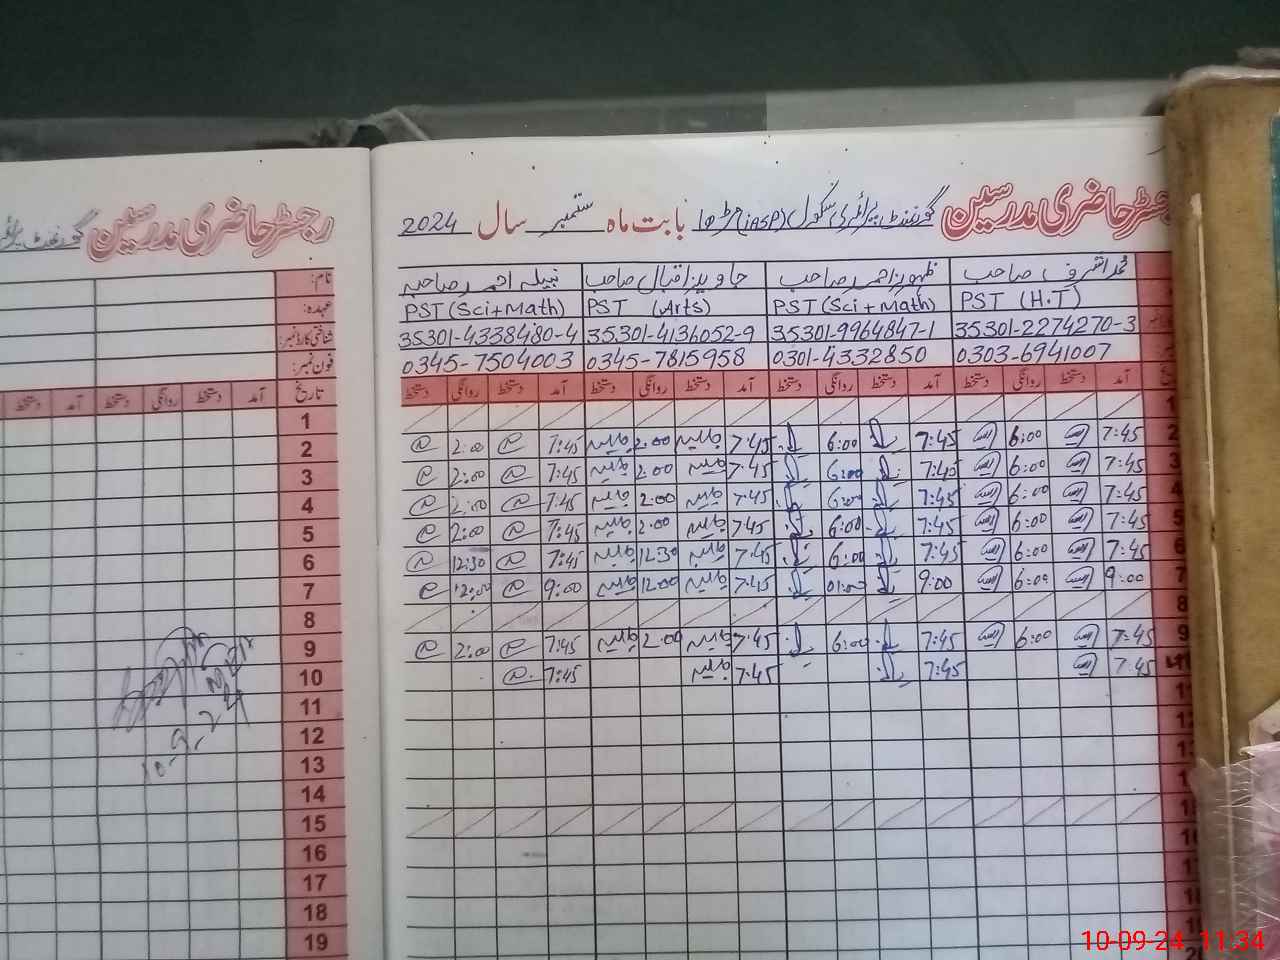 رجسٹر حاضری مدرسین گورنمنٹ پرائمری سکول (iASP) بابت ماہ ستمبر سال 2024
محمد اشرف صاحب ظہور احمد صاحب جاوید اقبال صاحب نبیلہ احمد صاحبہ
PST (H.T) PST (Sci + Math) PST (Arts) PST (Sci + Math)
35301-2274270-3 35301-9964847-1 35301-4136052-9 35301-4338480-4
0303-6941007 0301-4332850 0345-7815958 0345-7504003
آمد دستخط روانگی دستخط آمد دستخط روانگی دستخط آمد دستخط روانگی دستخط آمد دستخط روانگی دستخط
1
2 7:45 6:00 7:45 6:00 7.45 2.00 7:45 2:00
3 7:45 6:00 7:45 6:00 7.45 2.00 7:45 2:00
4 7:45 6:00 7:45 6:00 7.45 2.00 7:45 2:00
5 7:45 6:00 7:45 6:00 7.45 2.00 7:45 2:00
6 7:45 6:00 7:45 6:00 7.45 12.30 7:45 12:30
7 9:00 6:00 9:00 01:00 7.45 12.00 9:00 12:00
8
9 7:45 6:00 7:45 6:00 7.45 2.00 7:45 2:00
7:45 7:45 7.45 7:45
رجسٹر حاضری مدرسین گورنمنٹ
نام:
عہدہ:
شناختی کارڈ نمبر:
فون نمبر:
تاریخ آمد دستخط روانگی دستخط آمد دستخط
1
2
3
4
5
6
7
8
9
10
11
12
13
14
15
16
17
18
19
10-9-24
10-09-24 11:34